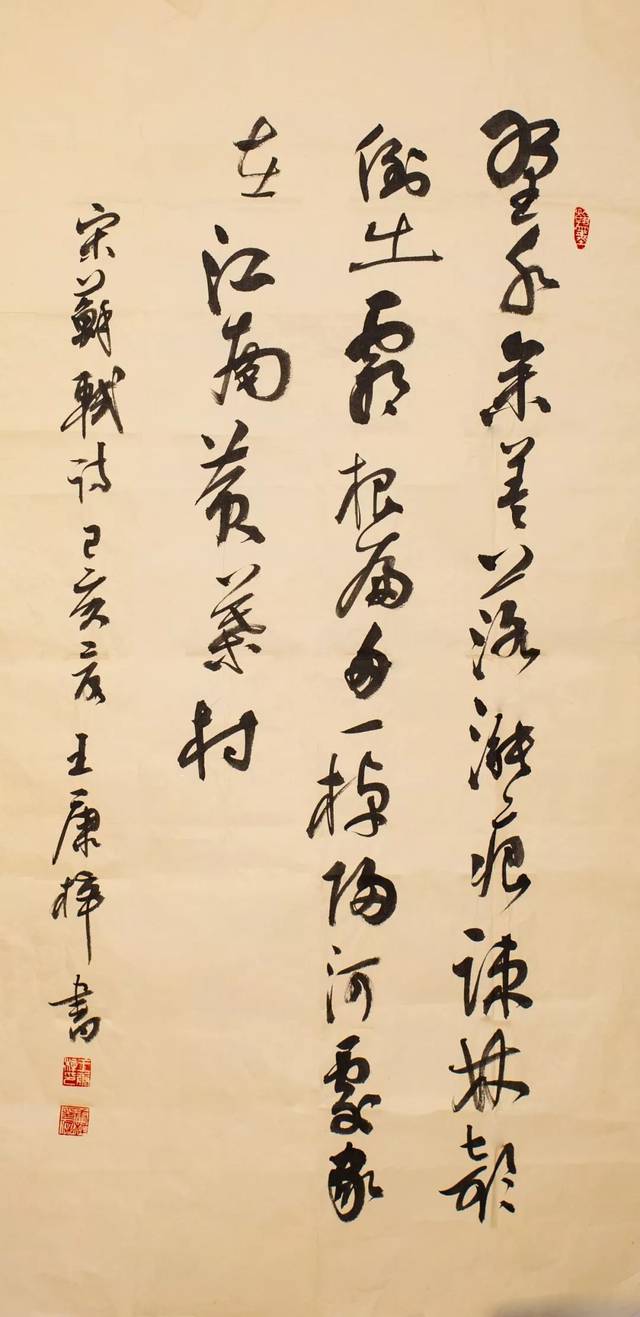 野水參差落漲痕疎林欹
倒出霜根扁舟一棹歸何處家
在江南黃葉村
宋蘇軾詩己亥夏王康梓書